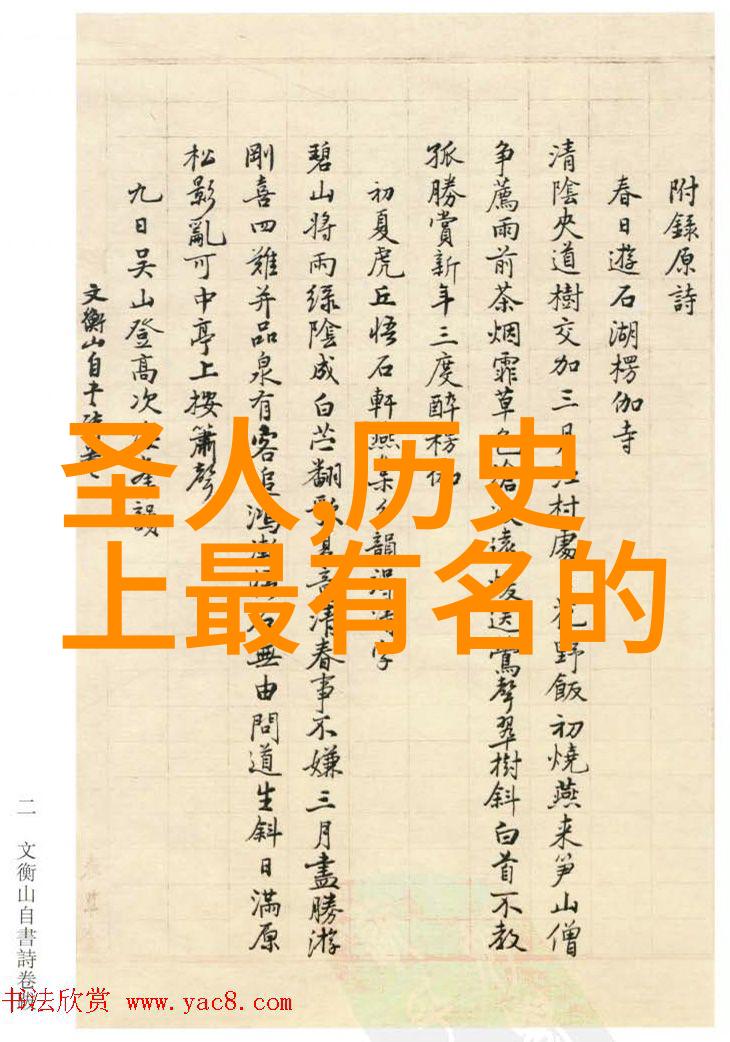 附錄原詩
春日遊石湖楞伽寺
清陰夾道樹交加三月江村處花野飯初燒燕来筍山僧
爭薦雨前茶烟霏草色送鶯聲翠樹斜白首不教
孤勝賞新年三度醉楞伽
初夏虎丘悟石軒燕集韻得字
碧山將雨綠陰成白苧翻歌清春事不嫌三月盡勝游
剛喜四難并品泉有客追鴻無由問道生斜日滿原
松影亂可中亭上按簫聲
九日吴山登高次韻
文衡山自書
圣人,历史
上最有名的
二 文衡山自書詩卷跋
书法欣赏 www.yac8.com